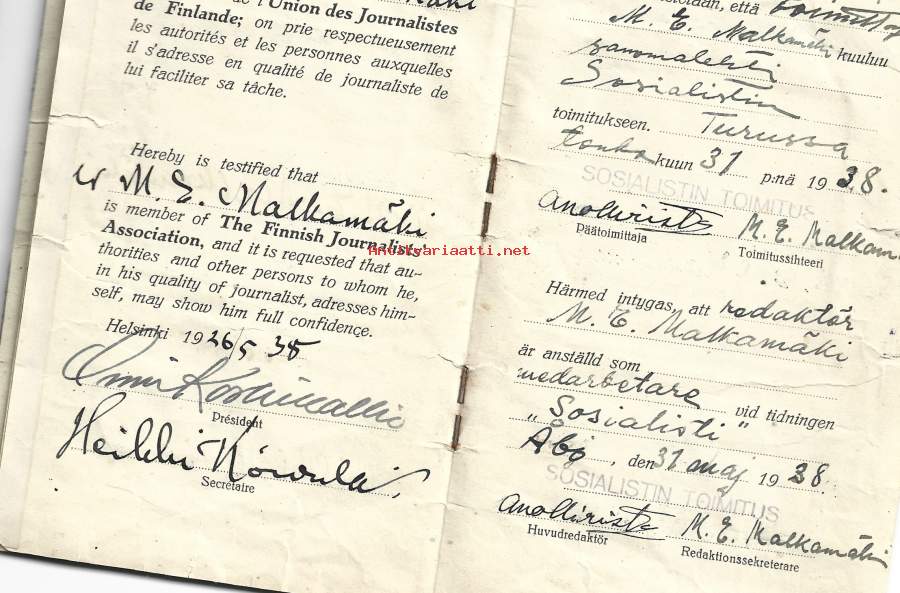 l'Union des Journalistes
de Finlande; on prie respectueusement
les autorités et les personnes auxquelles
il s'adresse en qualité de journaliste de
lui faciliter sa tâche.
Hereby is testified that
M. E. Malkamäki
is member of The Finnish Journalists
Association, and it is requested that au-
thorities and other persons to whom he,
in his quality of journalist, adresses him-
self, may show him full confidence.
Helsinki 1926/5 38
Président
Heikki
Secrétaire
että toimittaja
M. E. Malkamäki kuuluu
sanomalehti
Sosialistin
toimitukseen. Turussa
touko kuun 31 p:nä 1938.
SOSIALISTIN TOIMITUS
M. E. Malkamä
Päätoimittaja Toimitussihteeri
Antikvariaatti.net
Härmed intygas, att redaktör
M. E. Malkamäki
är anställd som
medarbetare vid tidningen
"Sosialisti"
Åbo, den 31 maj 1938.
SOSIALISTIN TOIMITUS
M. E. Malkamäki
Huvudredaktör Redaktionssekreterare